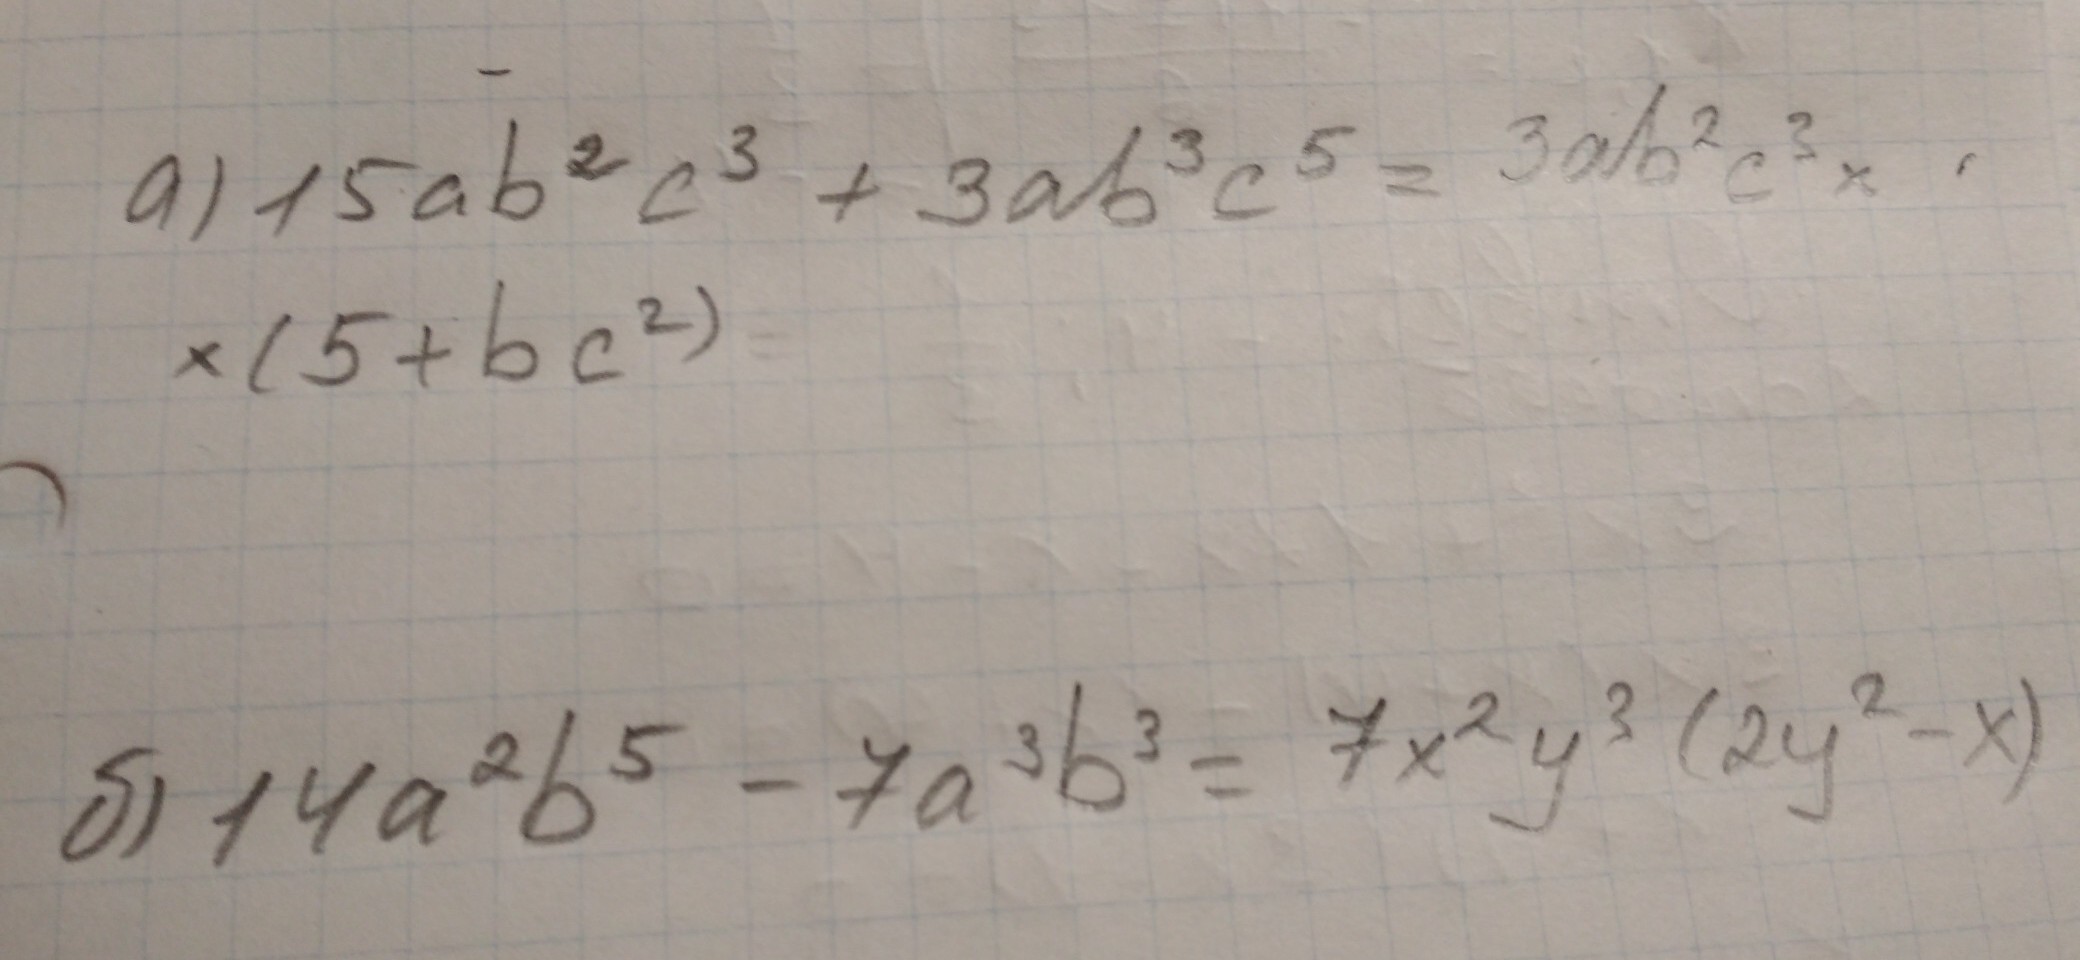 а) 15ab²c³ + 3ab³c⁵ = 3ab²c³ ×
× (5 + bc²)
б) 14a²b⁵ - 7a³b³ = 7x²y³ (2y² - x)